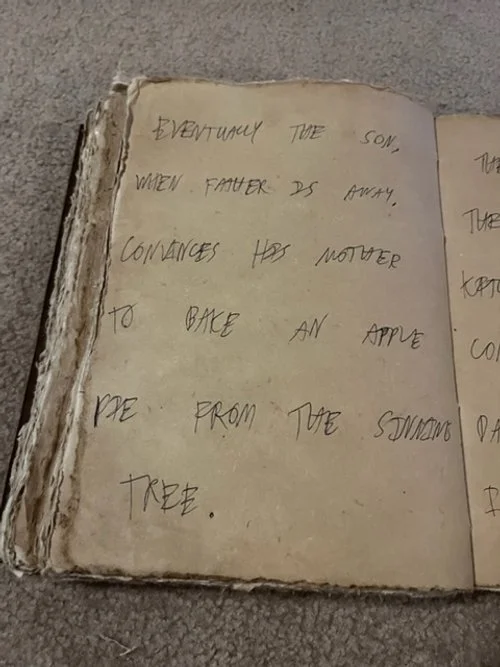 EVENTUALLY THE SON,
WHEN FATHER IS AWAY.
CONVINCES HIS MOTHER
TO BAKE AN APPLE
PIE FROM THE SINNING
TREE.
THE
THE